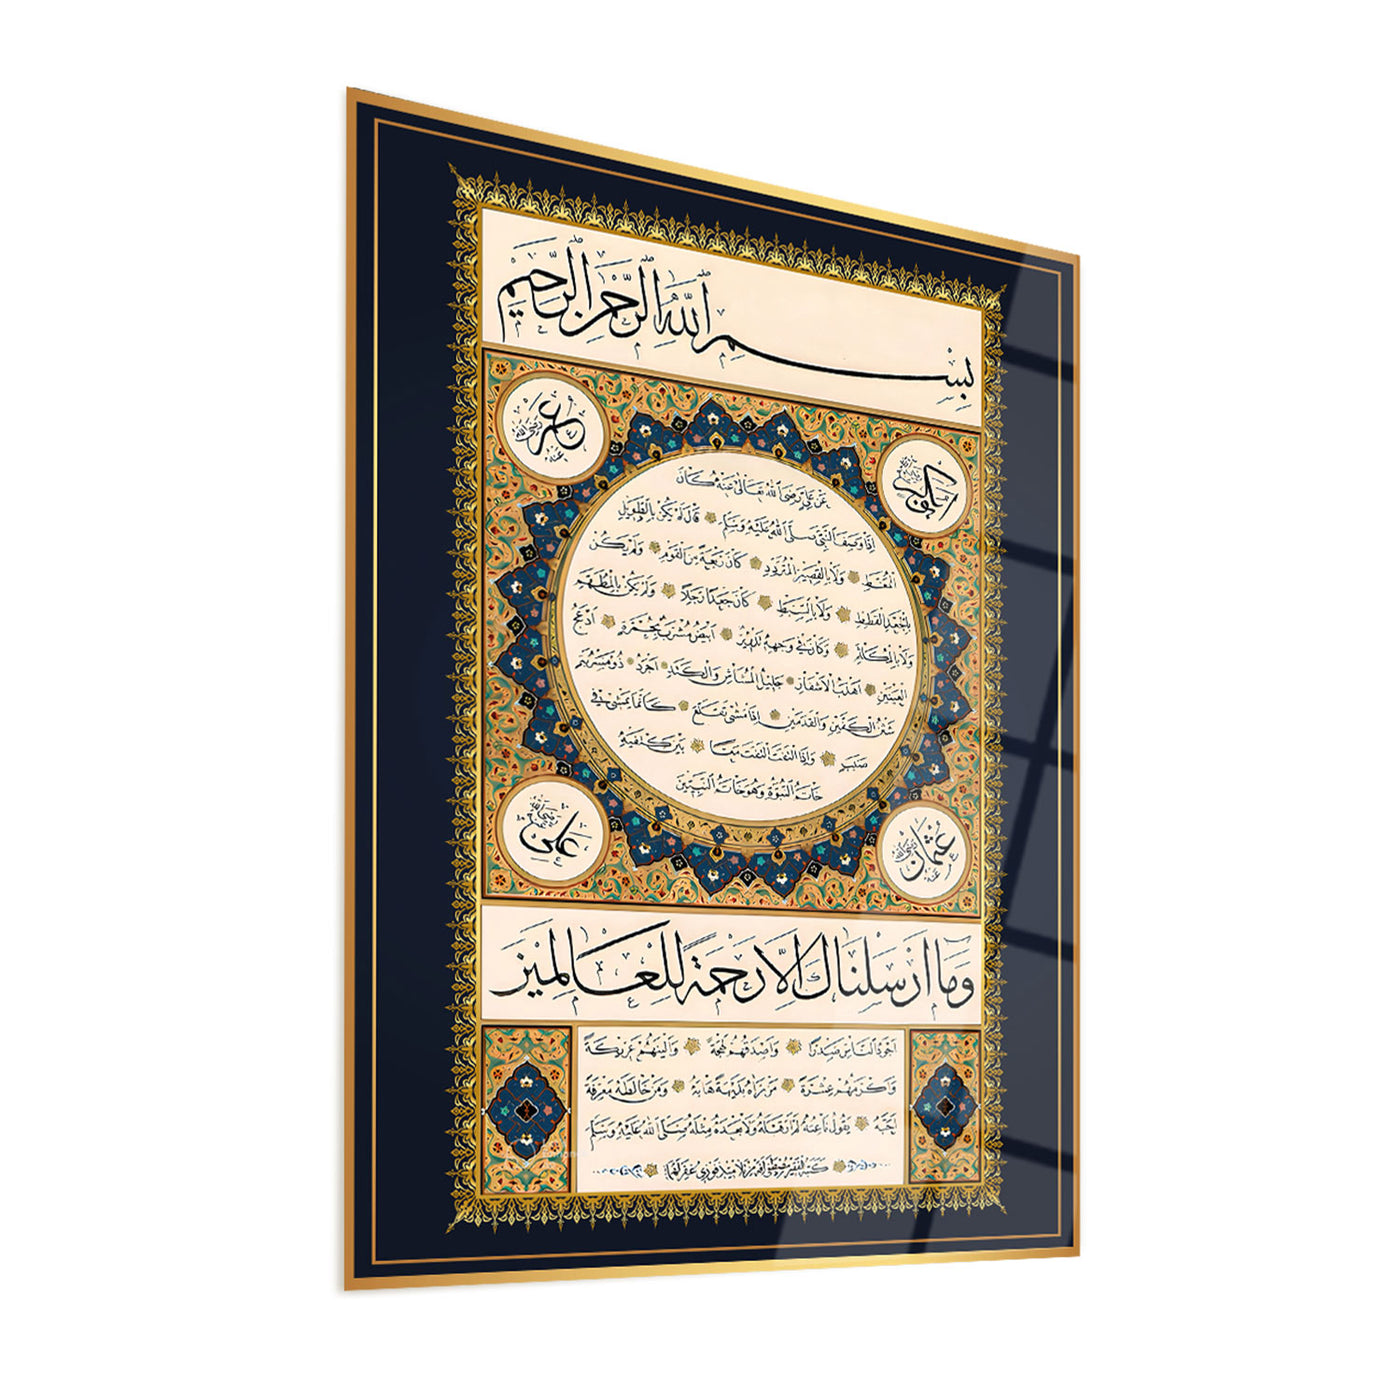 بِسْمِ اللّٰهِ الرَّحْمٰنِ الرَّحِيمِ
عمر رضي الله عنه
ابو بكر رضي الله عنه
عَنْ عَلِيٍّ رَضِيَ اللهُ تَعَالَى عَنْهُ كَانَ
اِذَا وَصَفَ النَّبِيَّ صَلَّى اللهُ عَلَيْهِ وَسَلَّمَ قَالَ لَمْ يَكُنْ بِالطَّوِيلِ
الْمُمَّغِطِ وَلَا بِالْقَصِيرِ الْمُتَرَدِّدِ كَانَ رَبْعَةً مِنَ الْقَوْمِ وَلَمْ يَكُنْ
بِالْجَعْدِ الْقَطَطِ وَلَا بِالسَّبْطِ كَانَ جَعْدًا رَجِلًا وَلَمْ يَكُنْ بِالْمُطَهَّمِ
وَلَا بِالْمُكَلْثَمِ وَكَانَ فِي وَجْهِهِ تَدْوِيرٌ اَبْيَضُ مُشْرَبٌ بِحُمْرَةٍ اَدْعَجُ
الْعَيْنَيْنِ اَهْدَبُ الْاَشْفَارِ جَلِيلُ الْمُشَاشِ وَالْكَتَدِ اَجْرَدُ ذُو مَسْرُبَةٍ
شَثْنُ الْكَفَّيْنِ وَالْقَدَمَيْنِ اِذَا مَشَى تَقَلَّعَ كَاَنَّمَا يَمْشِي فِي
صَبَبٍ وَاِذَا الْتَفَتَ الْتَفَتَ مَعًا بَيْنَ كَتِفَيْهِ
خَاتَمُ النُّبُوَّةِ وَهُوَ خَاتَمُ النَّبِيِّينَ
علي
عثمان رضي الله عنه
وَمَا اَرْسَلْنَاكَ اِلَّا رَحْمَةً لِلْعَالَمِينَ
اَجْوَدُ النَّاسِ صَدْرًا وَاَصْدَقُهُمْ لَهْجَةً وَاَلْيَنُهُمْ عَرِيكَةً
وَاَكْرَمُهُمْ عِشْرَةً مَنْ رَآهُ بَدِيهَةً هَابَهُ وَمَنْ خَالَطَهُ مَعْرِفَةً
اَحَبَّهُ يَقُولُ نَاعِتُهُ لَمْ اَرَ قَبْلَهُ وَلَا بَعْدَهُ مِثْلَهُ صَلَّى اللهُ عَلَيْهِ وَسَلَّمَ
كتبه الفقير مصطفى